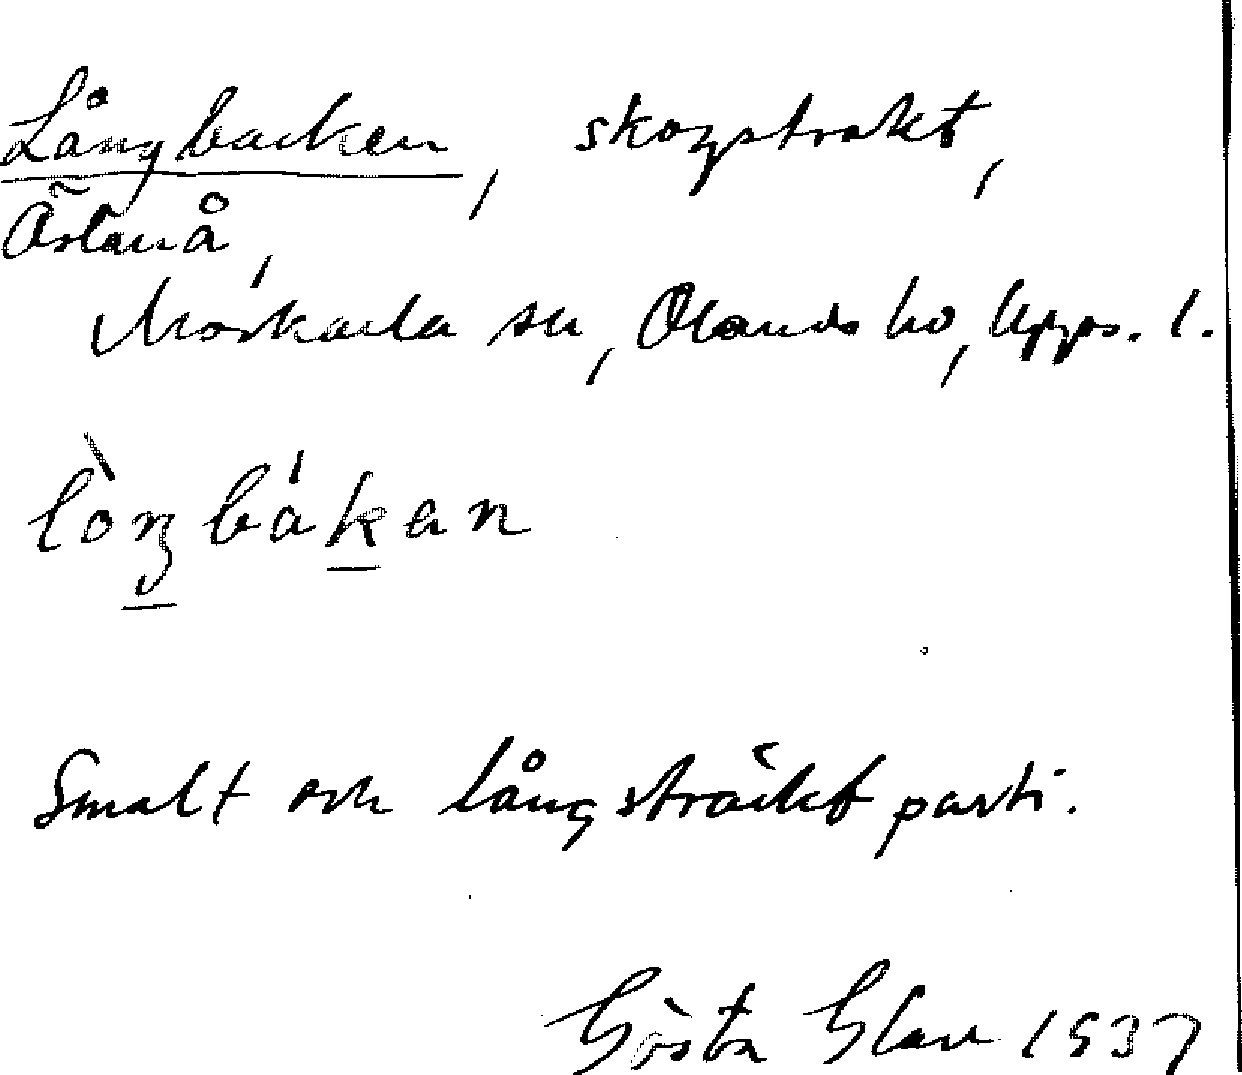 Långbacken, skogstrakt,
Östanå,
Morkarla sn, Olands hd, Upps. l.
lòŋbákan
Smalt och långsträckt parti.
Gösta Glan 1937